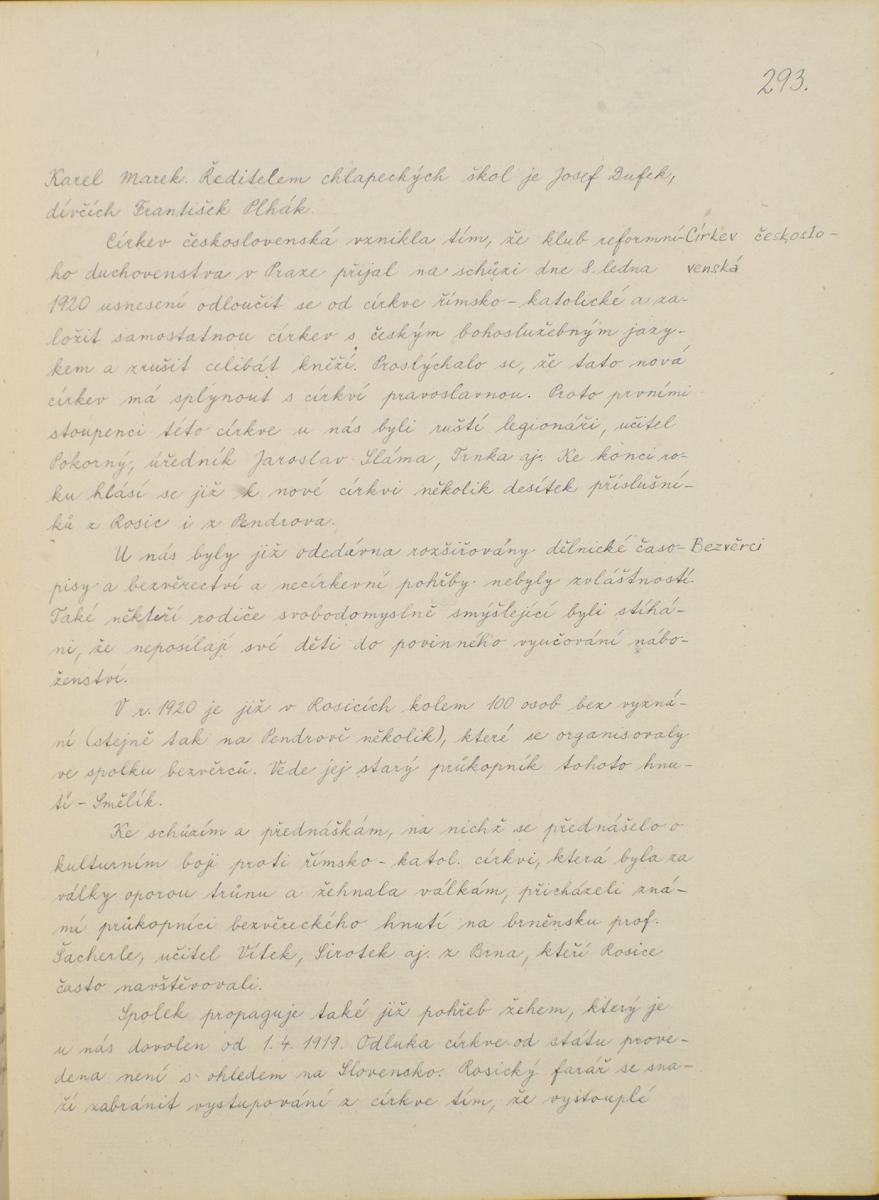 293.
Karel Marek. Ředitelem chlapeckých škol je Josef Dufek,
dívčích František Plhák.
Církev československá vznikla tím, že klub reformní-
Církev českoslo-
ho duchovenstva v Praze přijal na schůzi dne 8. ledna
venská
1920 usnesení odloučit se od církve římsko-katolické a za-
ložit samostatnou církev s českým bohoslužebným jazy-
kem a zrušit celibát kněží. Proslýchalo se, že tato nová
církev má splynout s církví pravoslavnou. Proto prvními
stoupenci této církve u nás byli ruští legionáři, učitel
Pokorný, úředník Jaroslav Sláma, Trnka aj. Ke konci ro-
ku hlásí se již k nové církvi několik desítek příslušní-
ků z Rosic i z Pendrova.
U nás byly již odedávna rozšiřovány dělnické časo-
Bezvěrci
pisy a bezvěrectví a necírkevní pohřby nebyly zvláštností.
Také někteří rodiče svobodomyslně smýšlející byli stíhá-
ni, že neposílají své děti do povinného vyučování nábo-
ženství.
V r. 1920 je již v Rosicích kolem 100 osob bez vyzná-
ní (stejně tak na Pendrově několik), které se organisovaly
ve spolku bezvěrců. Vede jej starý průkopník tohoto hnu-
tí - Smělík.
Ke schůzím a přednáškám, na nichž se přednášelo o
kulturním boji proti římsko-katol. církvi, která byla za
války oporou trůnu a žehnala válkám, přicházeli zná-
mí průkopníci bezvěreckého hnutí na brněnsku prof.
Šacherle, učitel Vítek, Sirotek aj. z Brna, kteří Rosice
často navštěvovali.
Spolek propaguje také již pohřeb žehem, který je
u nás dovolen od 1. 4. 1919. Odluka církve od státu prove-
dena není s ohledem na Slovensko. Rosický farář se sna-
ží zabránit vystupování z církve tím, že vystouplé